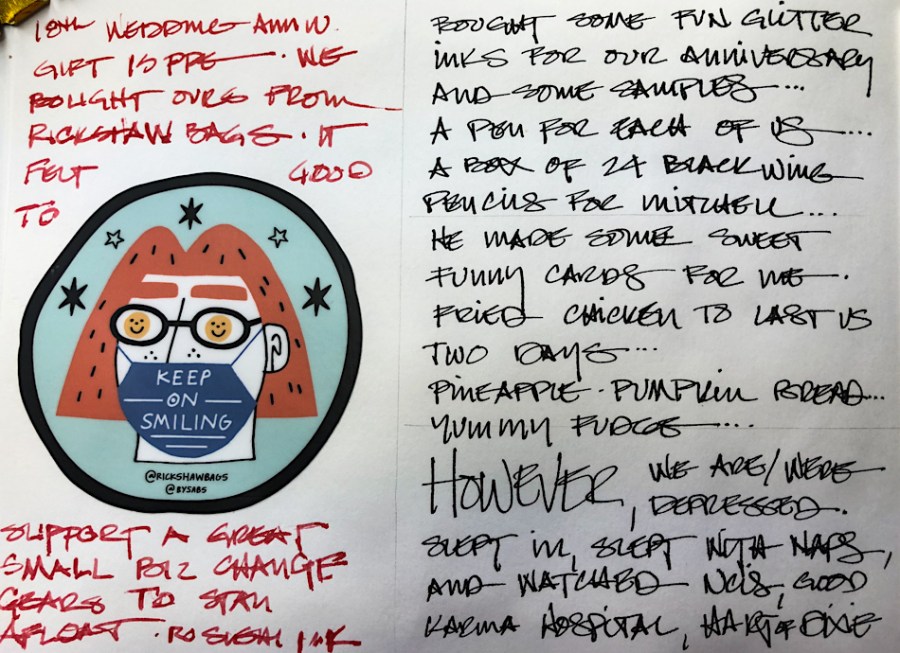 18th WEDDING ANNIV.
GIFT IS PPE. WE
BOUGHT OURS FROM
RICKSHAW BAGS. IT
FELT GOOD
TO
KEEP
ON
SMILING
@RICKSHAWBAGS
@BYSABS
SUPPORT A GREAT
SMALL BIZ CHANGE
GEARS TO STAY
AFLOAT. INK
BOUGHT SOME FUN GLITTER
INKS FOR OUR ANNIVERSARY
AND SOME SAMPLES...
A PEN FOR EACH OF US...
A BOX OF 24 BLACKWING
PENCILS FOR MITCHELL...
HE MADE SOME SWEET
FUNNY CARDS FOR ME.
FRIED CHICKEN TO LAST US
TWO DAYS...
PINEAPPLE. PUMPKIN BREAD...
YUMMY FUDGE....
HOWEVER, WE ARE/WERE
DEPRESSED.
SLEPT IN, SLEPT WITH NAPS,
AND WATCHED NCIS, GOOD
KARMA HOSPITAL, HART OF DIXIE